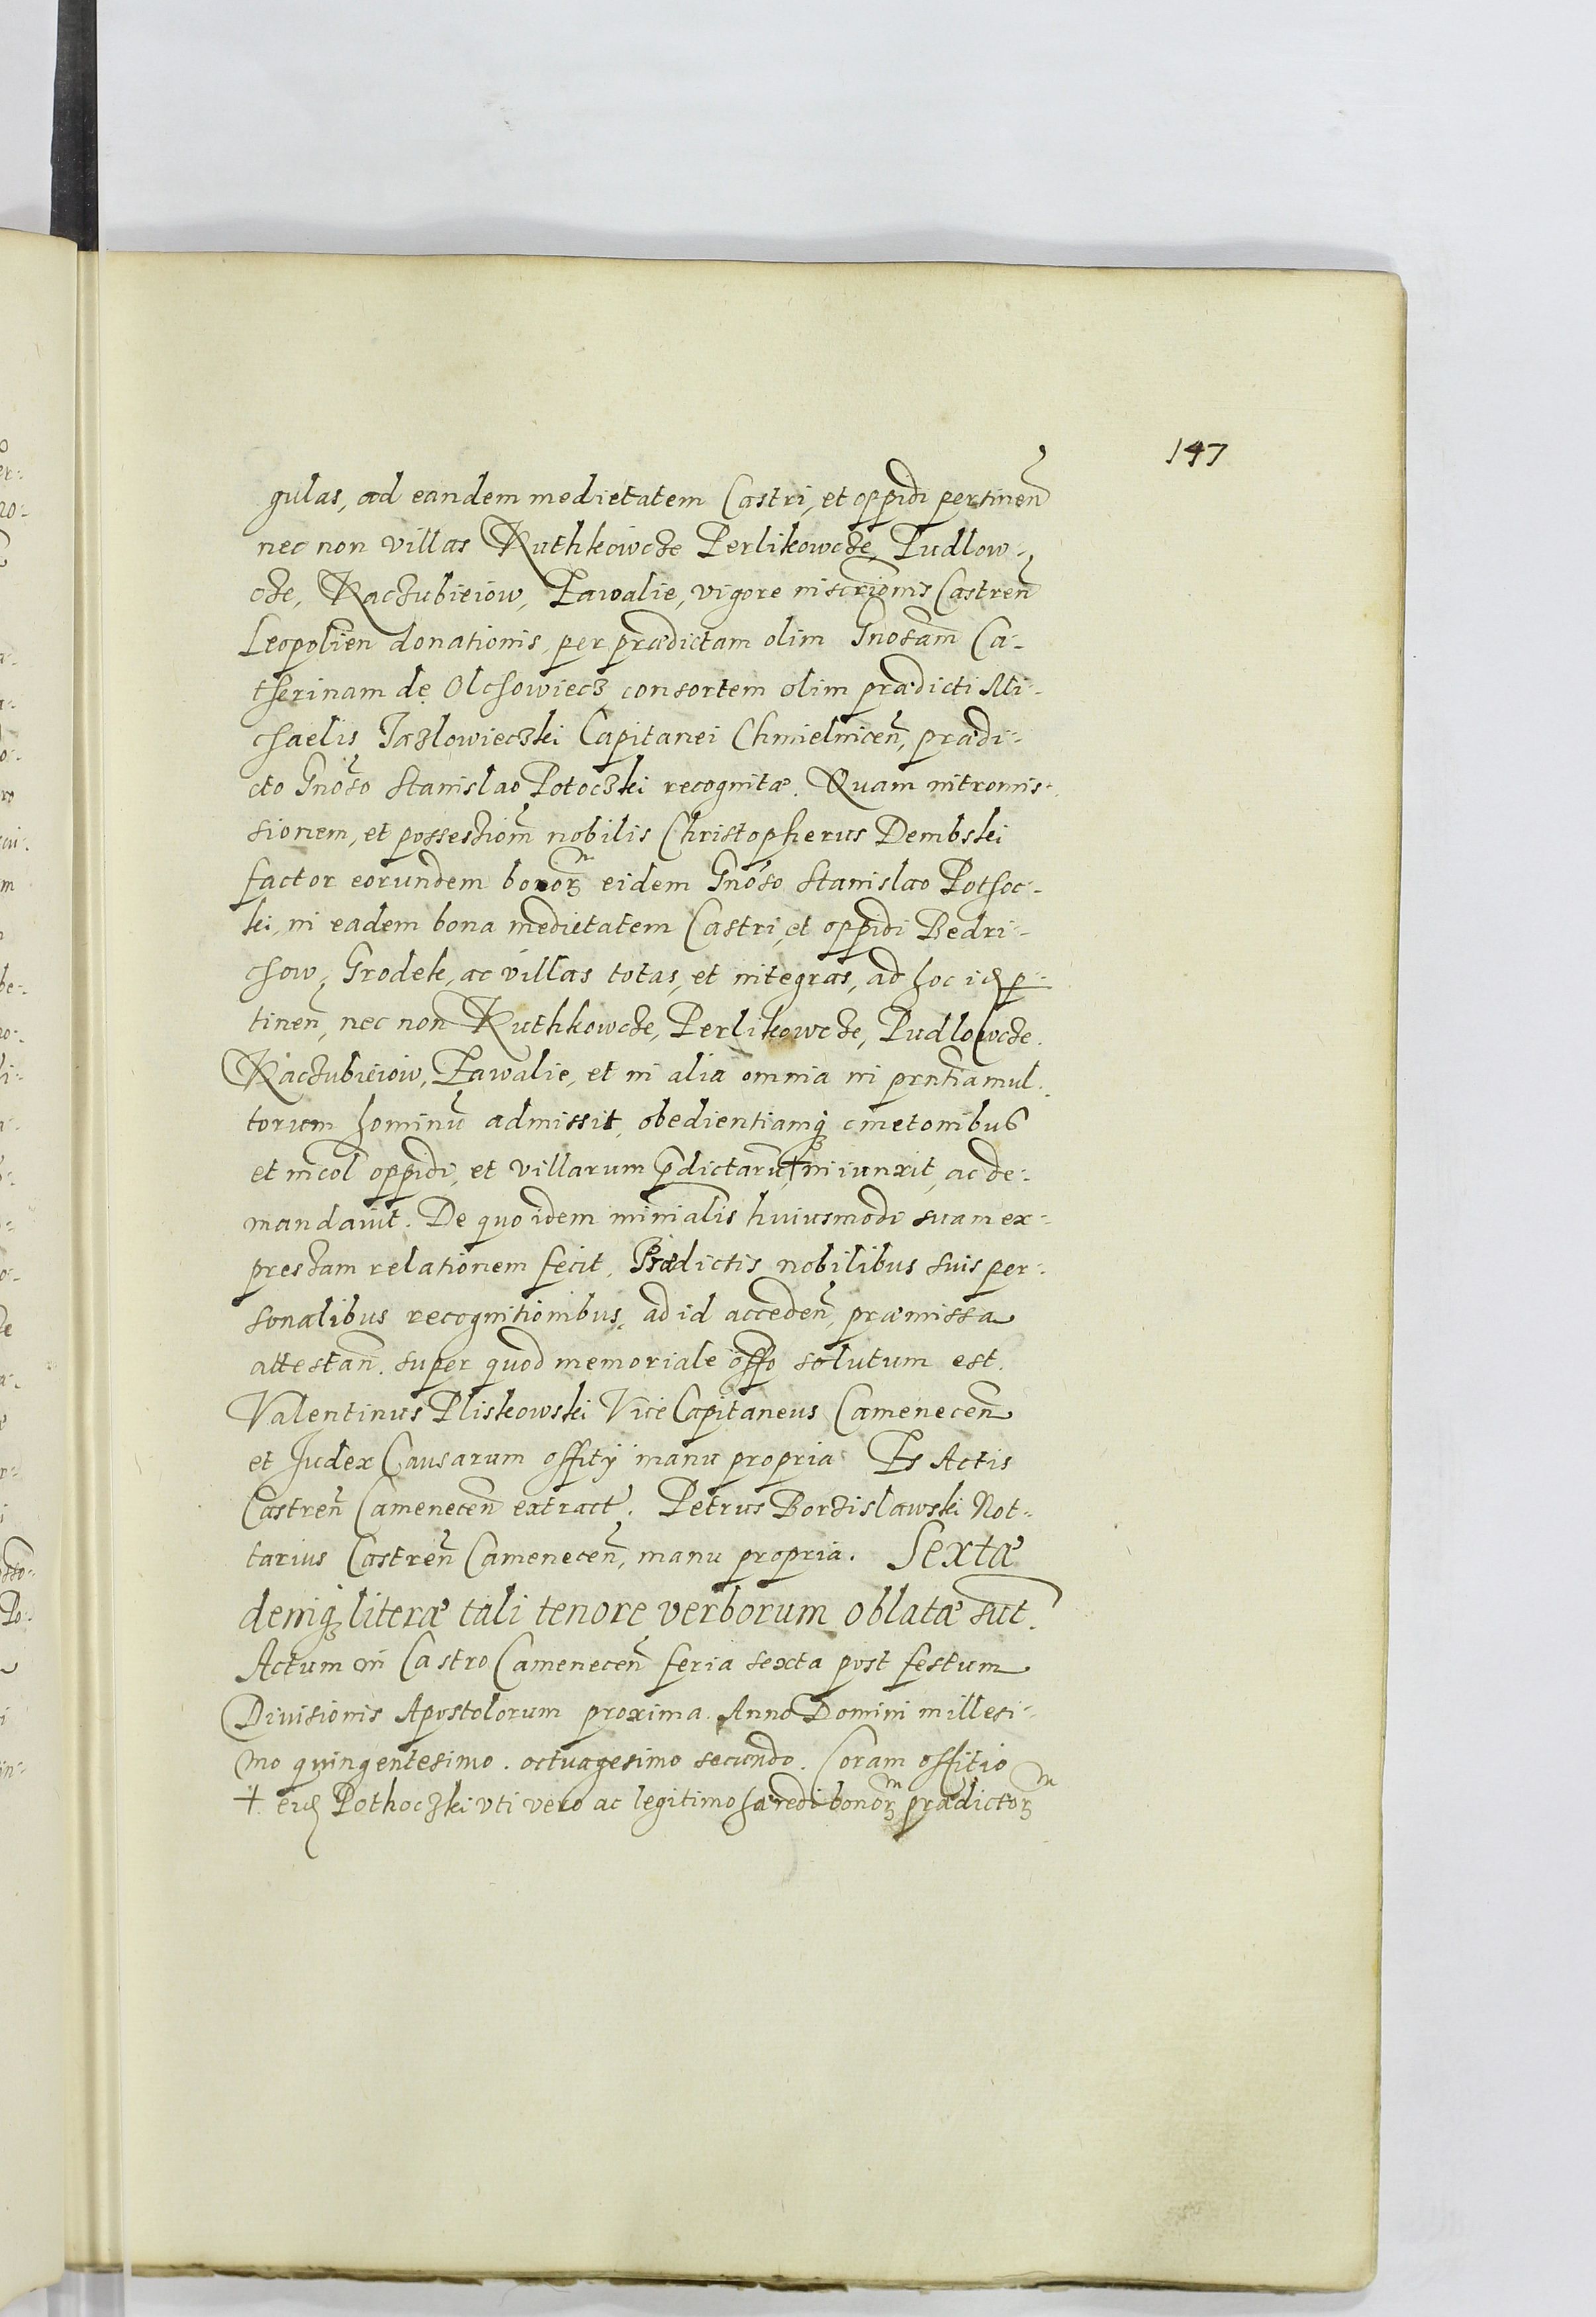 147
gulas, ad eandem medietatem Castri, et oppidi pertinen̄
nec non villas Ruthkowcze Perlikowcze, Pudlow-
cze, Raczubieiow, Pawalie, vigore inscrip̄onis Castren̄
Leopolien donationis, per prædictam olim Gnosam Ca-
therinam de Olchowiecz consortem olim prædicti Mi-
chaelis Jazlowieczki Capitanei Chmielnicen̄, prædi-
cto Gnōso Stanislao Potoczki recognitæ. Quam intromis-
sionem, et possessiom̄ nobilis Christopherus Dembski
factor eorundem bonorꝝ eidem Gnōso Stanislao Pothoc-
ki, in eadem bona medietatem Castri, et oppidi Bedri-
chow, Grodek, ac villas totas, et integras, ad hoc idꝫ p-
tinen̄, nec non Ruthkowcze, Perlikowcze, Pudlowcze.
Raczubieiow, Pawalie, et in alia omnia in prn̄tia mul-
torum hominū admissit, obedientiamqꝫ cmetonibus
et incol oppidi, et villarum p̄dictarū, ✝ iniunxit, ac de-
mandauit. De quo idem minīalis huiusmodi suam ex-
pressam relationem fecit, Prædictis nobilibus suis per-
sonalibus recognitionibus, ad id acceden̄, præmissa
attestan̄. super quod memoriale offo solutum est.
Valentinus Pliskowski Vice Capitaneus Camenecen̄
et Judex Causarum offitÿ manu propria Ex Actis
Castren̄ Camenecen̄ extract. Petrus Borzislawski Not-
tarius Castren̄ Camenecen̄, manu propria. Sextæ
deniqꝫ literæ tali tenore verborum oblatæ sūt.
Actum in Castro Camenecen̄ feria sexta post festum
Divisionis Apostolorum proxima. Anno Domini millesi-
mo quingentesimo. octuagesimo secundo. Coram offitio
✝ eidꝫ Pothoczki vti vero ac legitimo hæredi bonorꝝ prædictorꝝ